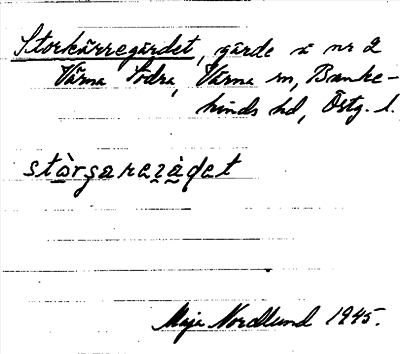 Storkärregärdet, gärde å nr 2
Värna Södra, Värna sn, Banke-
kinds hd, Östg. l.
stòrʂærezæ̀ḍet
Maja Nordlund 1945.